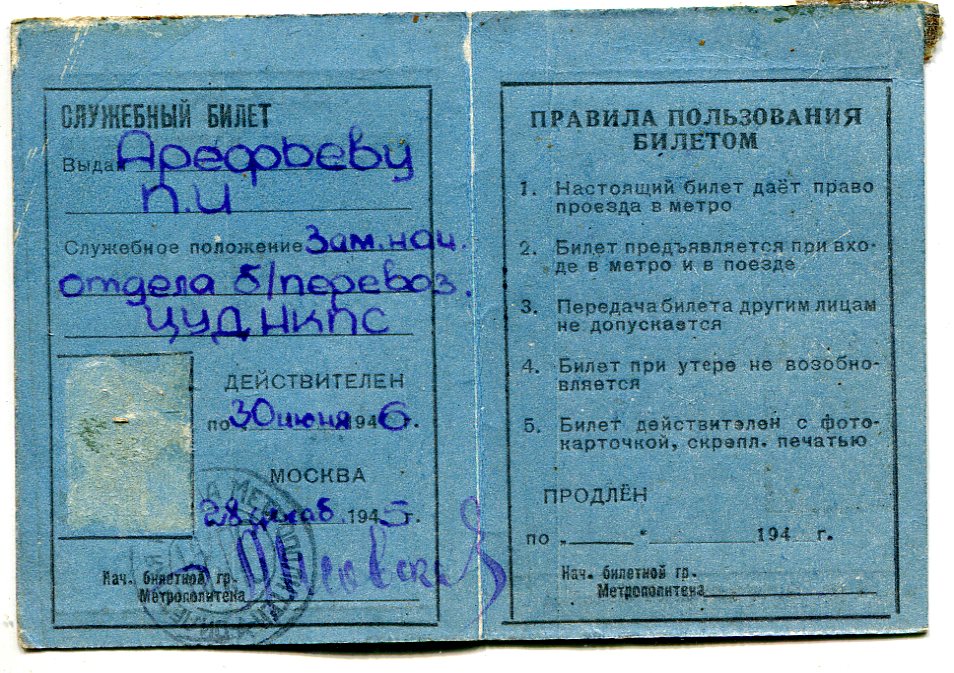 СЛУЖЕБНЫЙ БИЛЕТ
Выдан Арефьеву
П.И
Служебное положение Зам.нач.
отдела б/перевоз.
ЦУД НКПС
ДЕЙСТВИТЕЛЕН
по 30 июня 1946 г.
МОСКВА
28 декаб. 1945 г.
Нач. билетной гр.
Метрополитена
ПРАВИЛА ПОЛЬЗОВАНИЯ
БИЛЕТОМ
1. Настоящий билет даёт право
проезда в метро
2. Билет предъявляется при вхо-
де в метро и в поезде
3. Передача билета другим лицам
не допускается
4. Билет при утере не возобно-
вляется
5. Билет действителен с фото-
карточкой, скрепл. печатью
ПРОДЛЁН
по „ “ 194 г.
Нач. билетной гр.
Метрополитена